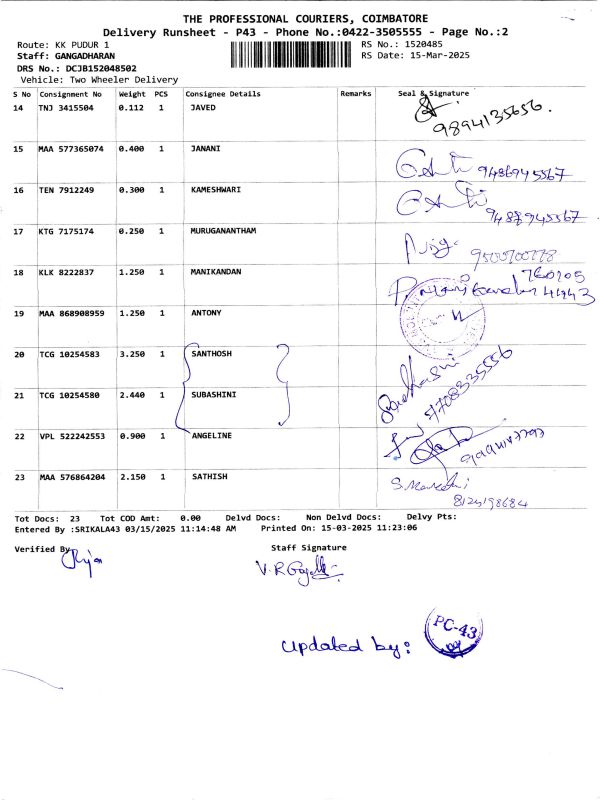 THE PROFESSIONAL COURIERS, COIMBATORE
Delivery Runsheet - P43 - Phone No.:0422-3505555 - Page No.:2
Route: KK PUDUR 1
RS No.: 1520485
Staff: GANGADHARAN
RS Date: 15-Mar-2025
DRS No.: DCJB152048502
Vehicle: Two Wheeler Delivery
S No Consignment No Weight PCS Consignee Details Remarks Seal & Signature
14 TNJ 3415504 0.112 1 JAVED
9894135656.
15 MAA 577365074 0.400 1 JANANI
9486945567
16 TEN 7912249 0.300 1 KAMESHWARI
9488945567
17 KTG 7175174 0.250 1 MURUGANANTHAM
18 KLK 8222837 1.250 1 MANIKANDAN
19 MAA 868908959 1.250 1 ANTONY
20 TCG 10254583 3.250 1 SANTHOSH
21 TCG 10254580 2.440 1 SUBASHINI
22 VPL 522242553 0.900 1 ANGELINE
23 MAA 576864204 2.150 1 SATHISH
8124198684
Tot Docs: 23 Tot COD Amt: 0.00 Delvd Docs: Non Delvd Docs: Delvy Pts:
Entered By :SRIKALA43 03/15/2025 11:14:48 AM Printed On: 15-03-2025 11:23:06
Verified By
Staff Signature
Updated by:
PC-43